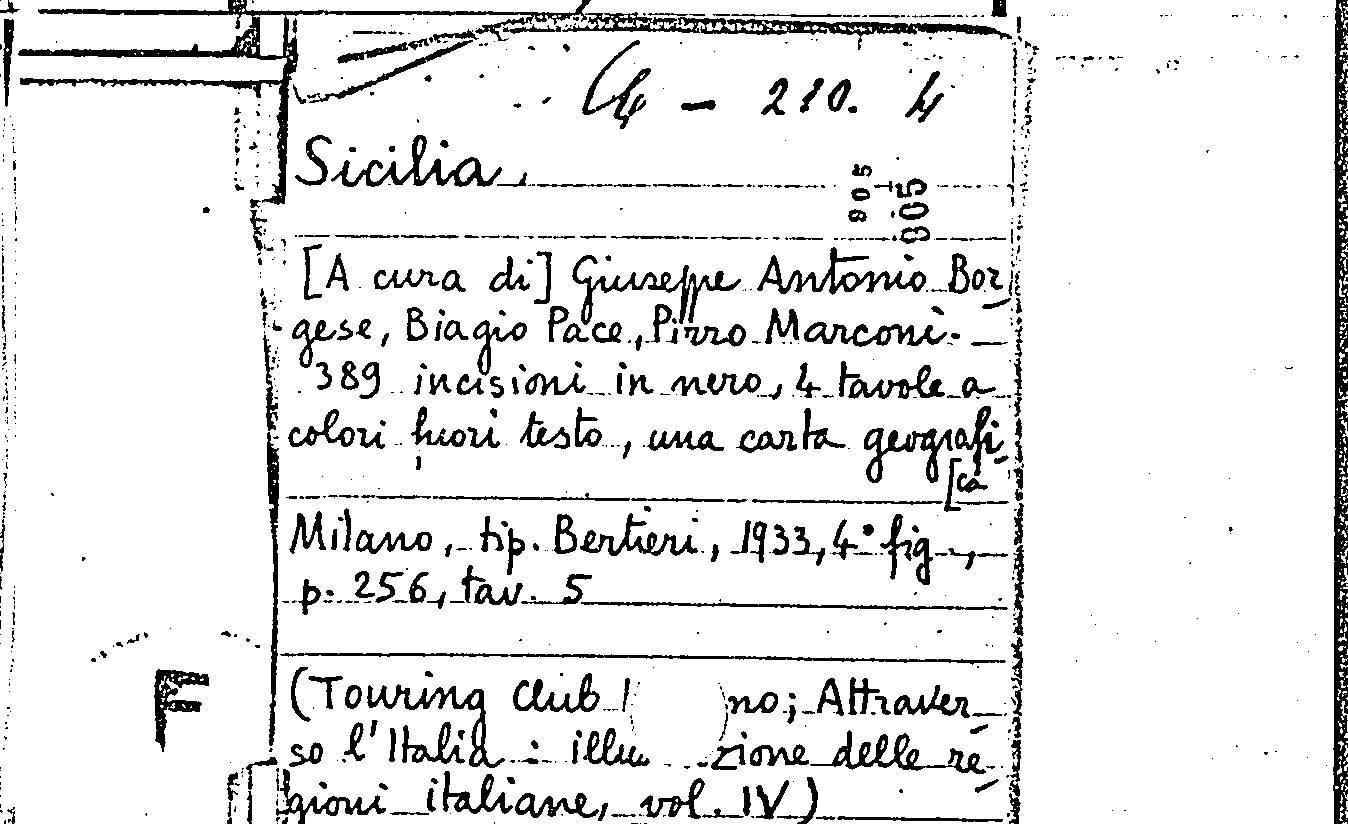 4 - 210. 4
Sicilia.
905
005
[A cura di] Giuseppe Antonio Bor
gese, Biagio Pace, Pirro Marconi. —
389 incisioni in nero, 4 tavole a
colori fuori testo, una carta geografi
[ca
Milano, tip. Bertieri, 1933, 4° fig.,
p. 256, tav. 5
F
(Touring Club I no; Attraver
so l'Italia : illu zione delle re
gioni italiane, vol. IV)